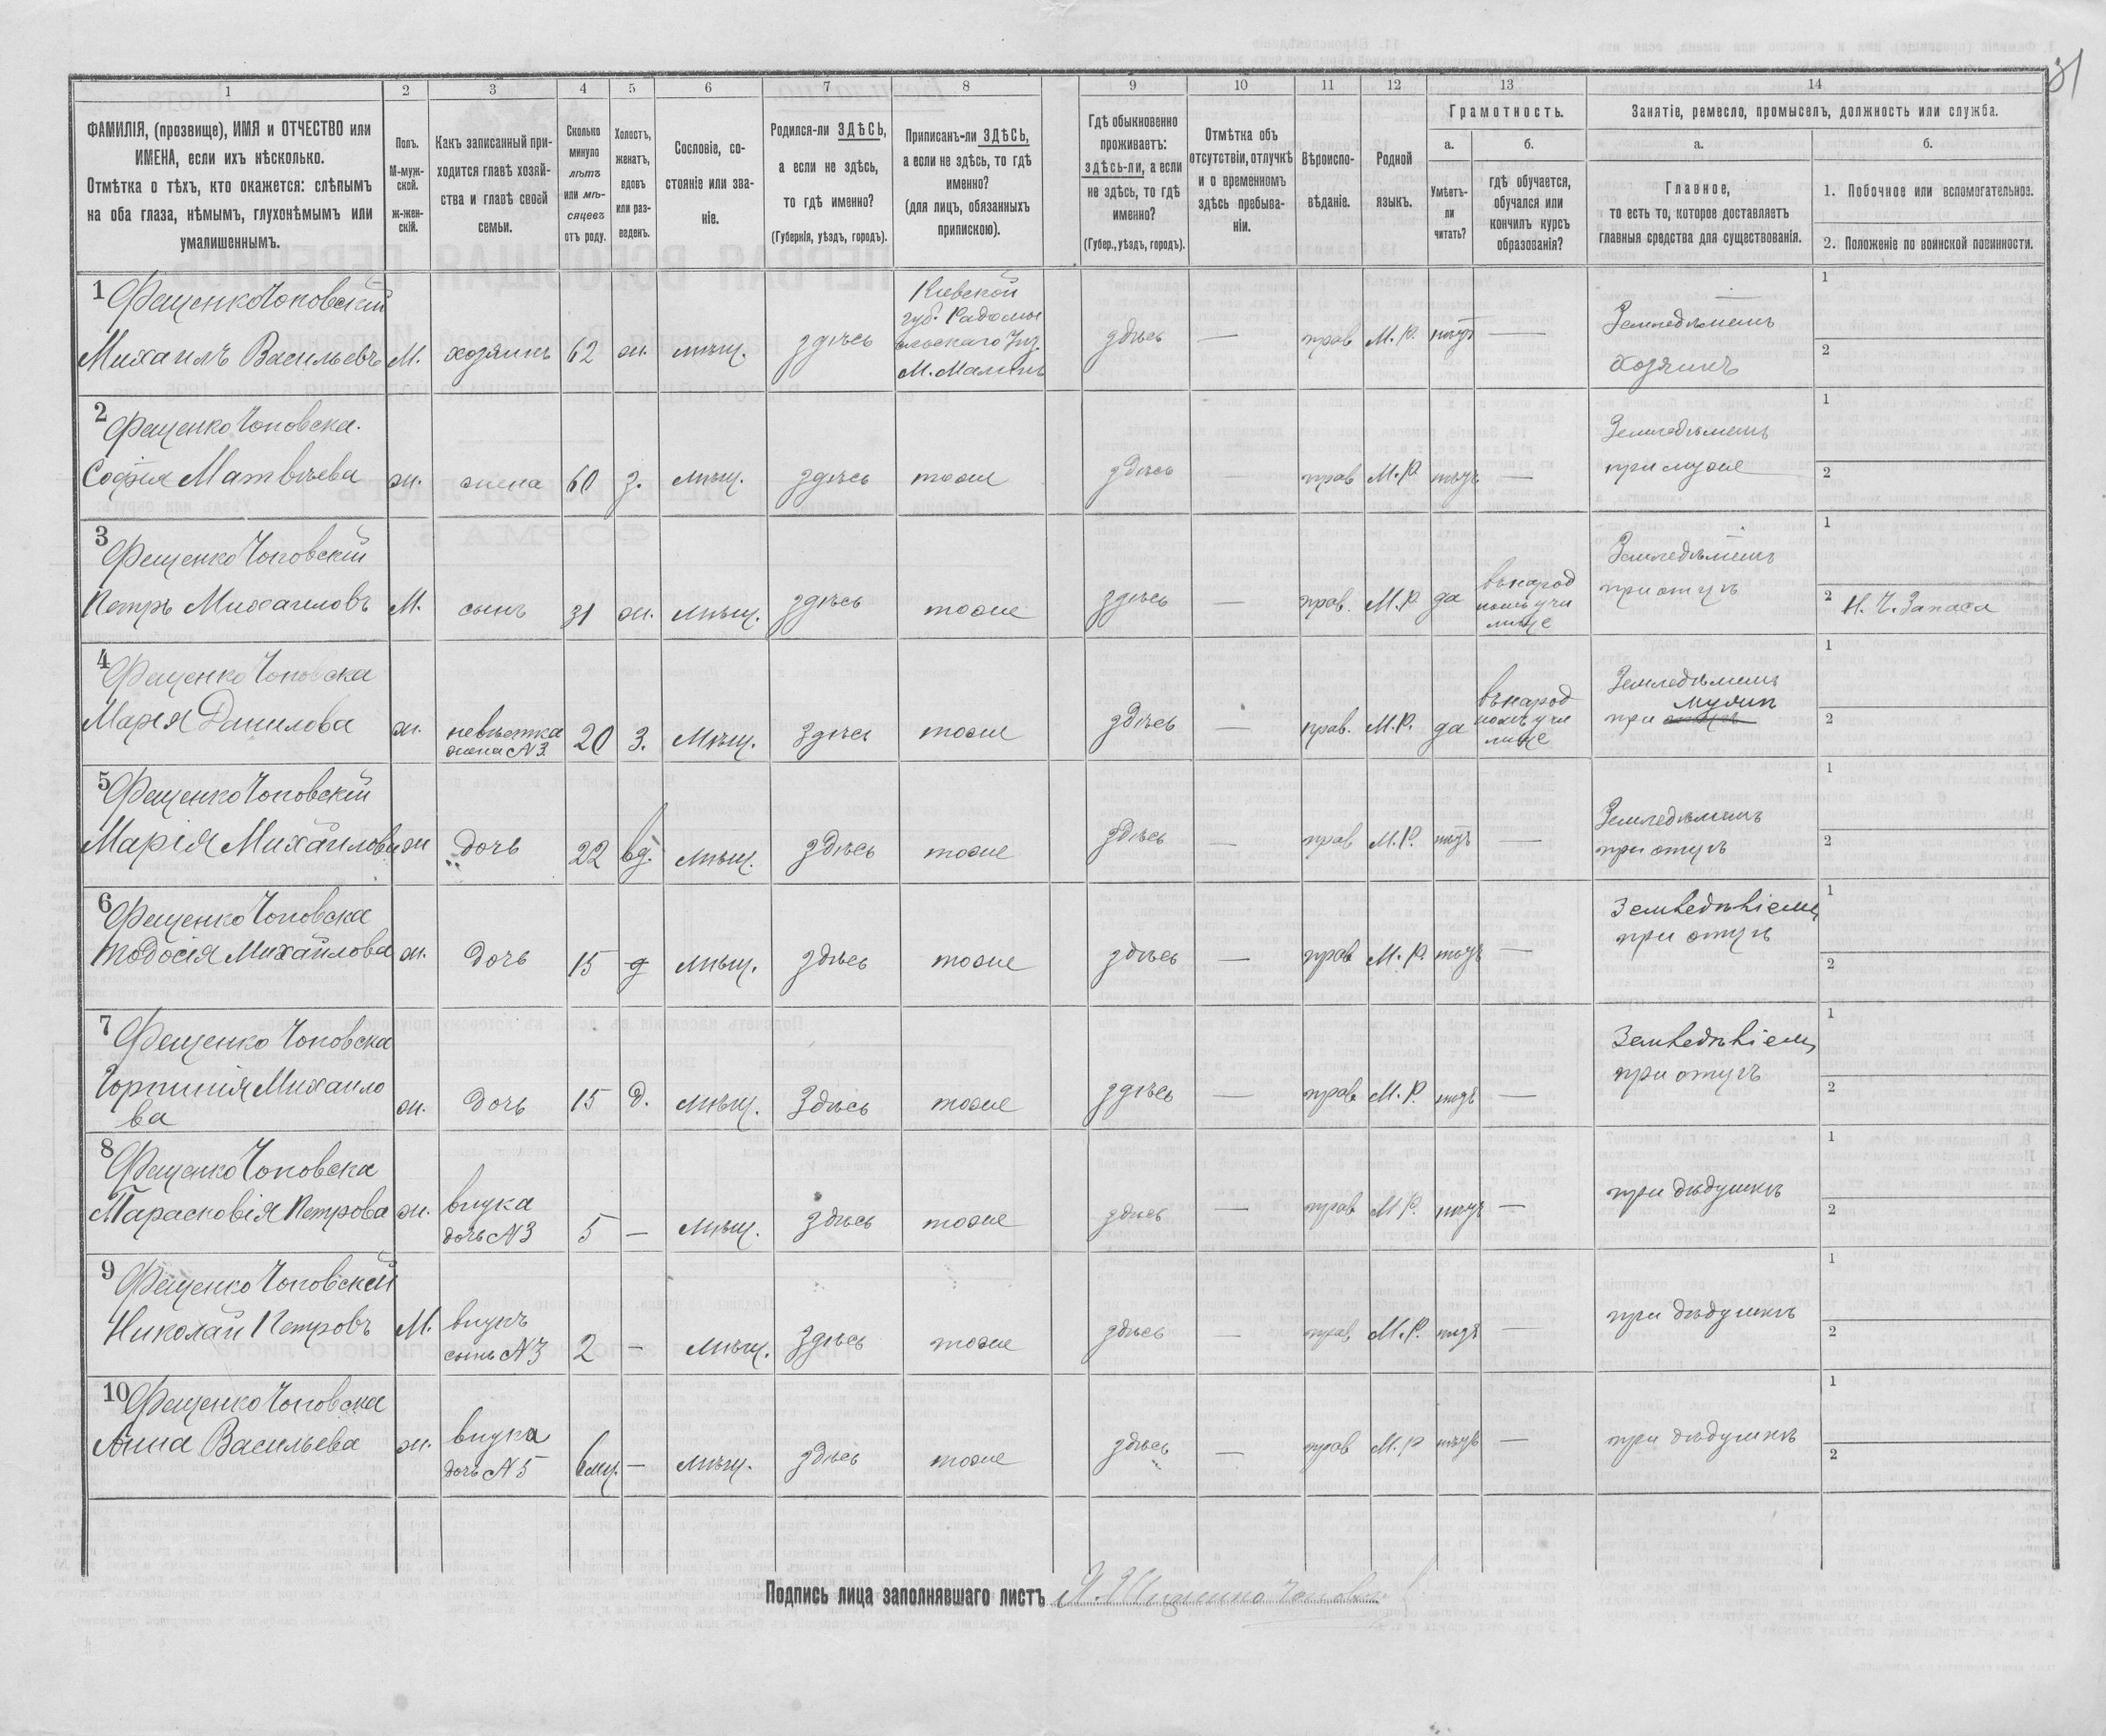 31
1 2 3 4 5 6 7 8 9 10 11 12 13 14
ФАМИЛІЯ, (прозвище), ИМЯ и ОТЧЕСТВО или
ИМЕНА, если ихъ нѣсколько.
Отмѣтка о тѣхъ, кто окажется: слѣпымъ
на оба глаза, нѣмымъ, глухонѣмымъ или
умалишеннымъ.
Полъ.
М-муж-
ской.
ж-жен-
скій.
Какъ записанный при-
ходится главѣ хозяй-
ства и главѣ своей
семьи.
Сколько
минуло
лѣтъ
или мѣ-
сяцевъ
отъ роду.
Холостъ,
женатъ,
вдовъ
или раз-
веденъ.
Сословіе, со-
стояніе или зва-
ніе.
Родился-ли ЗДѢСЬ,
а если не здѣсь,
то гдѣ именно?
(Губернія, уѣздъ, городъ).
Приписанъ-ли ЗДѢСЬ,
а если не здѣсь, то гдѣ
именно?
(для лицъ, обязанныхъ
припискою).
Гдѣ обыкновенно
проживаетъ:
здѣсь-ли, а если
не здѣсь, то гдѣ
именно?
(Губер., уѣздъ, городъ).
Отмѣтка объ
отсутствіи, отлучкѣ
и о временномъ
здѣсь пребыва-
ніи.
Вѣроиспо-
вѣданіе.
Родной
языкъ.
Грамотность.
а.
Умѣетъ-
ли
читать?
б.
гдѣ обучается,
обучался или
кончилъ курсъ
образованія?
Занятіе, ремесло, промыселъ, должность или служба.
а.
Главное,
то есть то, которое доставляетъ
главныя средства для существованія.
б.
1. Побочное или вспомогательное.
2. Положеніе по воинской повинности.
1 Фещенко Чоповскій
Михаилъ Васильевъ М. хозяинъ 62 ж. мѣщ. здѣсь
Кіевской
губ. Радомы
сльскаго Уѣз.
М. Малинъ
здѣсь — прав М. Р. нѣтъ —
хозяинъ
1
2
2 Фещенко Чоповска.
Софія Матвѣева ж. жена 60 з. мѣщ. здѣсь тоже здѣсь прав М. Р. нѣтъ —
при мужѣ
1
2
3 Фещенко Чоповскій
Петръ Михаиловъ М. сынъ 31 ж. мѣщ. здѣсь тоже здѣсь — прав. М. Р. да
въ народ
номъ учи
лище
при отцѣ
1
2 Н. Ч. Запаса
4 Фещенко Чоповска
Марія Данилова ж. невѣстка
жена N 3 20 З. мѣщ. здѣсь тоже здѣсь — прав. М. Р. да
въ народ
номъ учи
лище
при мужѣ
1
2
5 Фещенко Чоповскій
Марія Михайлова ж дочь 22 вд. мѣщ. здѣсь тоже здѣсь — прав М. Р. нѣтъ —
при отцѣ
1
2
6 Фещенко Чоповска
Тодосія Михайлова ж. дочь 15 д мѣщ. здѣсь тоже здѣсь — прав М. Р. нѣтъ —
при отцѣ
1
2
7 Фещенко Чоповска
Горпинія Михаило
ва ж. дочь 15 д. мѣщ. Здѣсь тоже здѣсь — прав М. Р. нѣтъ —
при отцѣ
1
2
8 Фещенко Чоповска
Парасковія Петрова ж. внука
дочь N 3 5 — мѣщ. здѣсь тоже здѣсь — прав М. Р. нѣтъ —
при дѣдушкѣ
1
2
9 Фещенко Чоповскій
Николай Петровъ М. внукъ
сынъ N 3 2 — мѣщ. здѣсь тоже здѣсь — прав М. Р. нѣтъ —
при дѣдушкѣ
1
2
10 Фещенко Чоповска
Анна Васильева ж. внука
дочь N 5 6 мц. — мѣщ. здѣсь тоже здѣсь — прав М. Р. нѣтъ —
при дѣдушкѣ
1
2
Подпись лица заполнявшаго листъ